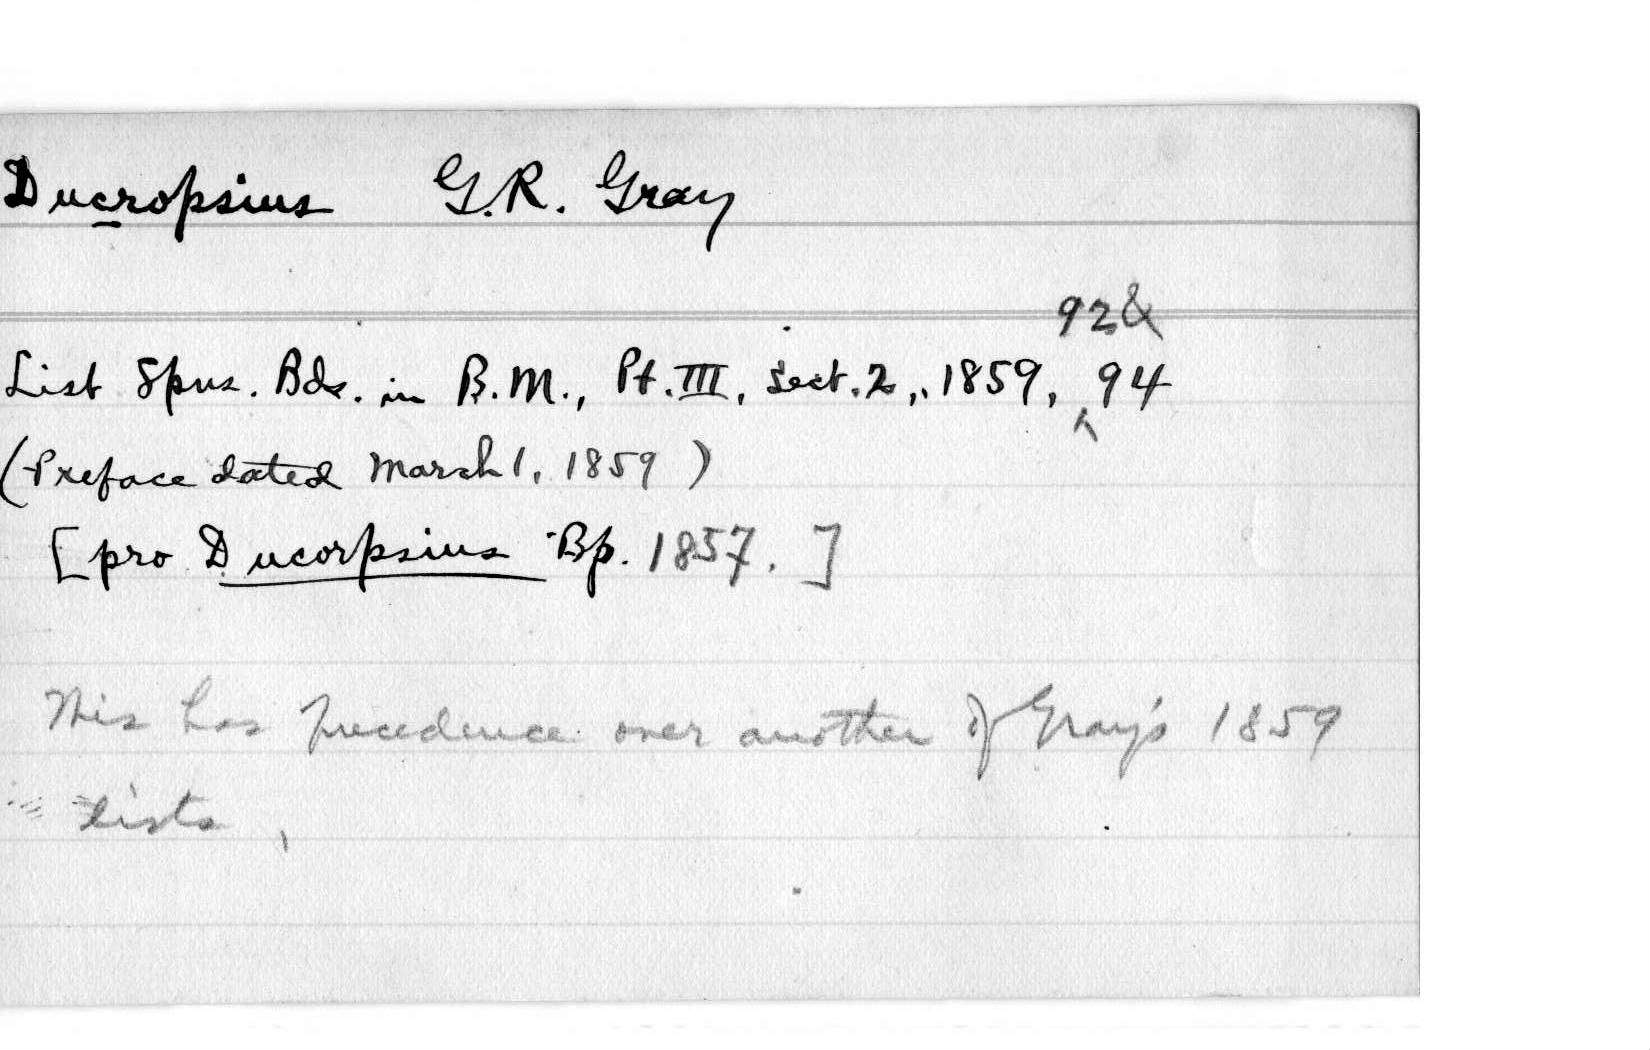 Ducropsius G. R. Gray
92 &
List Spns. Bds. in B.M., Pt. III, Sect. 2, 1859, ^ 94
(Preface dated March 1, 1859)
[pro Ducorpsius Bp. 1857.]
This has precedence over another of Gray's 1859
Lists,